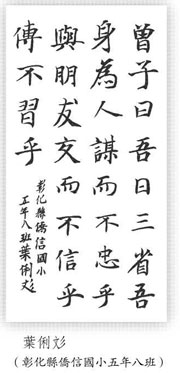 曾子曰吾日三省吾
身為人謀而不忠乎
與朋友交而不信乎
傳不習乎
彰化縣僑信國小
五年八班葉俐彣
葉俐彣
（彰化縣僑信國小五年八班）